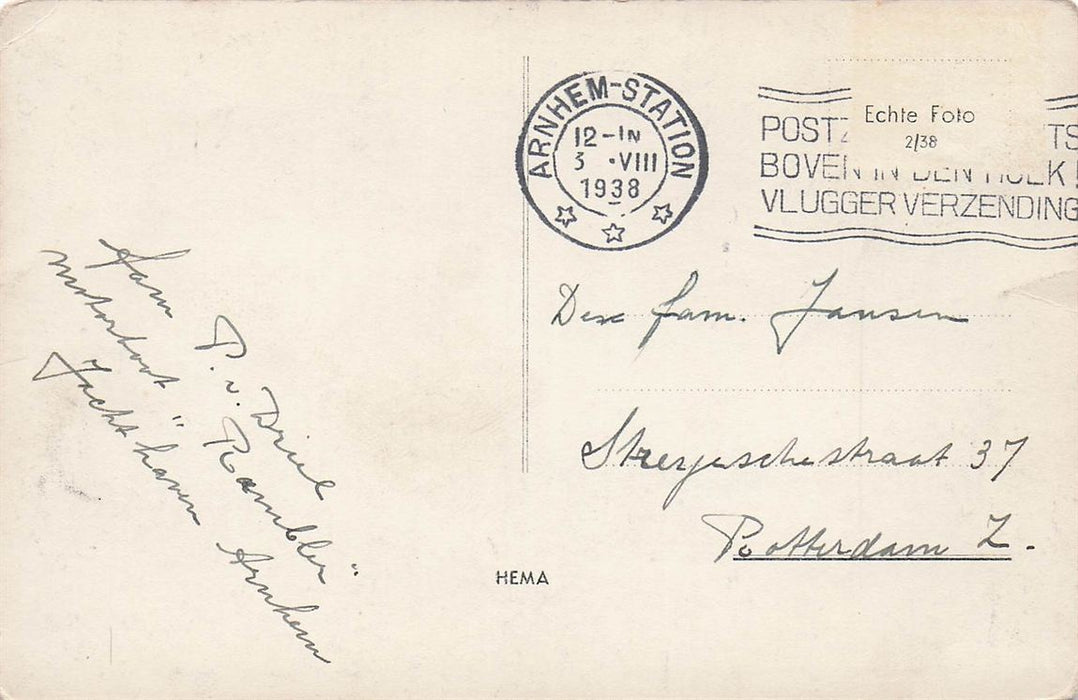 ARNHEM-STATION
12-IN
3 ·VIII
1938
Echte Foto
2/38
POSTZ TS
BOVEN IN DEN HOEK!
VLUGGER VERZENDING
fam P. v. Driel
motorboot "Rambler"
Jachthaven Arnhem
Den fam. Jansen
37
Rotterdam Z.
HEMA